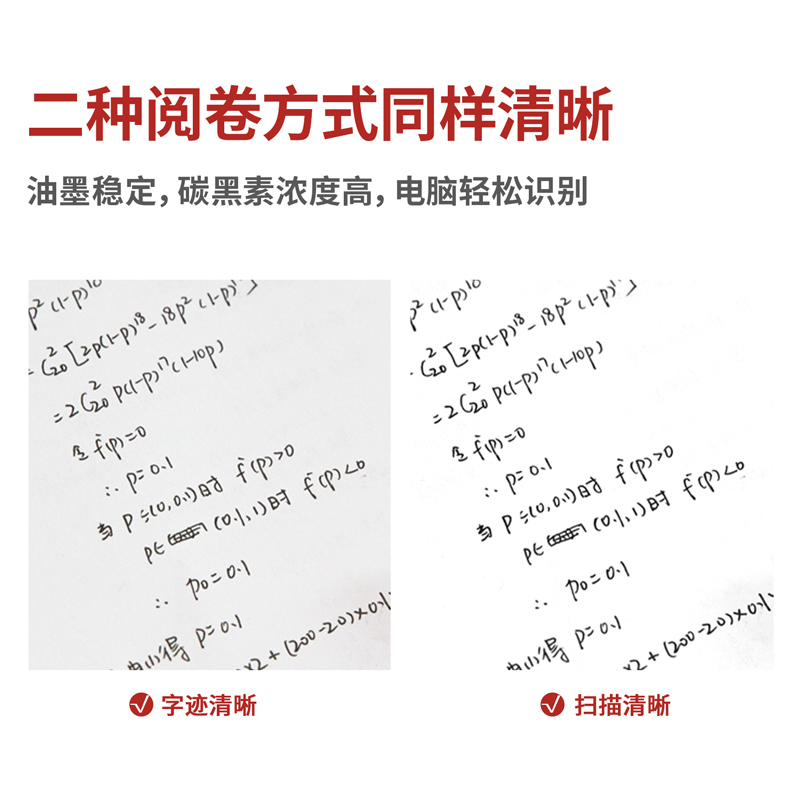 二种阅卷方式同样清晰
油墨稳定，碳黑素浓度高，电脑轻松识别
p²(1-p)¹⁸
= C₂₀² [2p(1-p)¹⁸ - 18p²(1-p)¹⁷]
= 2C₂₀² p(1-p)¹⁷(1-10p)
令 f'(p)=0
∴ p=0.1
当 p=(0,0.1)时 f'(p)>0
p∈ (0.1,1)时 f'(p)<0
∴ p₀=0.1
小得 p=0.1
×2+(200-20)×0.1
p²(1-p)¹⁸
C₂₀² [2p(1-p)¹⁸ - 18p²(1-p)¹⁷]
= 2C₂₀² p(1-p)¹⁷(1-10p)
令 f'(p)=0
∴ p=0.1
当 p=(0,0.1)时 f'(p)>0
p∈ (0.1,1)时 f'(p)<0
∴ p₀=0.1
小得 p=0.1
×2+(200-20)×0.1
字迹清晰
扫描清晰